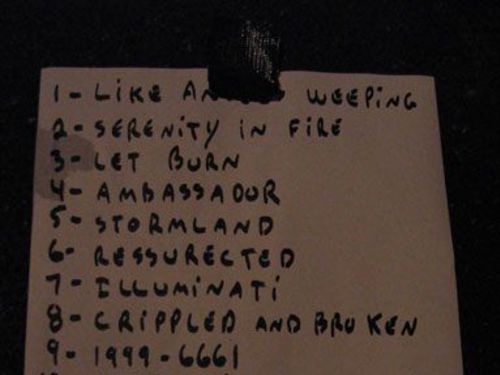 1- LIKE WEEPING
2- SERENITY IN FIRE
3- LET BURN
4- AMBASSADUR
5- STORMLAND
6- RESSURECTED
7- ILLUMINATI
8- CRIPPLED AND BROKEN
9- 1999-6661